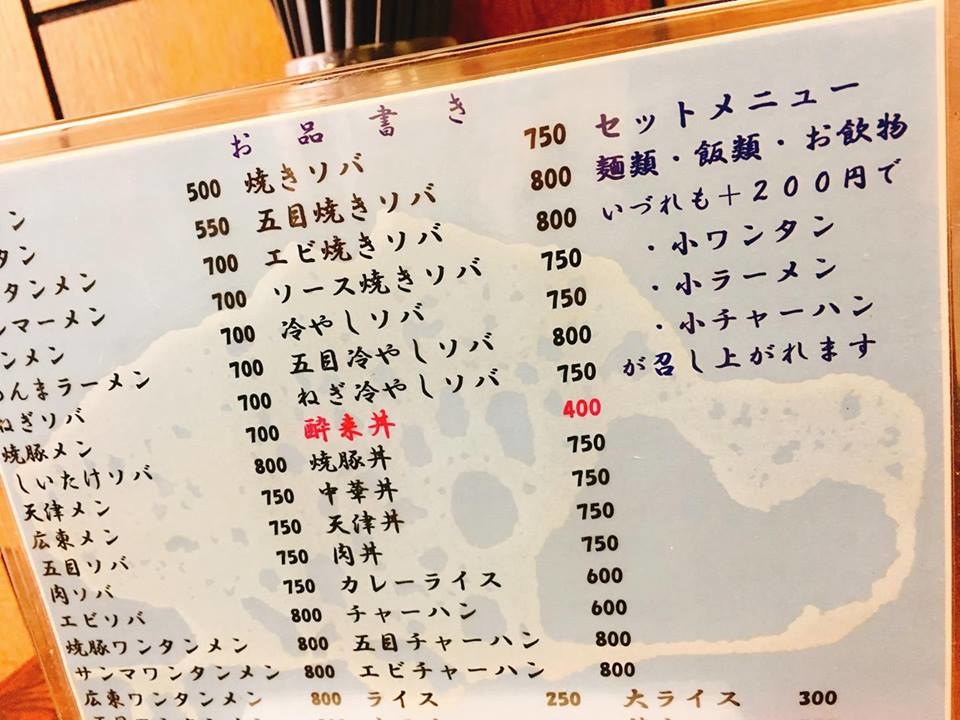 お品書き
ン 500
タン 550
タンメン 700
ンマーメン 700
ンメン 700
んまラーメン 700
ねぎソバ 700
焼豚メン 700
しいたけソバ 800
天津メン 750
広東メン 750
五目ソバ 750
肉ソバ 750
エビソバ 800
焼豚ワンタンメン 800
サンマワンタンメン 800
広東ワンタンメン 800
焼きソバ 750
五目焼きソバ 800
エビ焼きソバ 800
ソース焼きソバ 750
冷やしソバ 750
五目冷やしソバ 800
ねぎ冷やしソバ 750
酔来丼 400
焼豚丼 750
中華丼 750
天津丼 750
肉丼 750
カレーライス 600
チャーハン 600
五目チャーハン 800
エビチャーハン 800
ライス 250 大ライス 300
セットメニュー
麺類・飯類・お飲物
いづれも+200円で
・小ワンタン
・小ラーメン
・小チャーハン
が召し上がれます